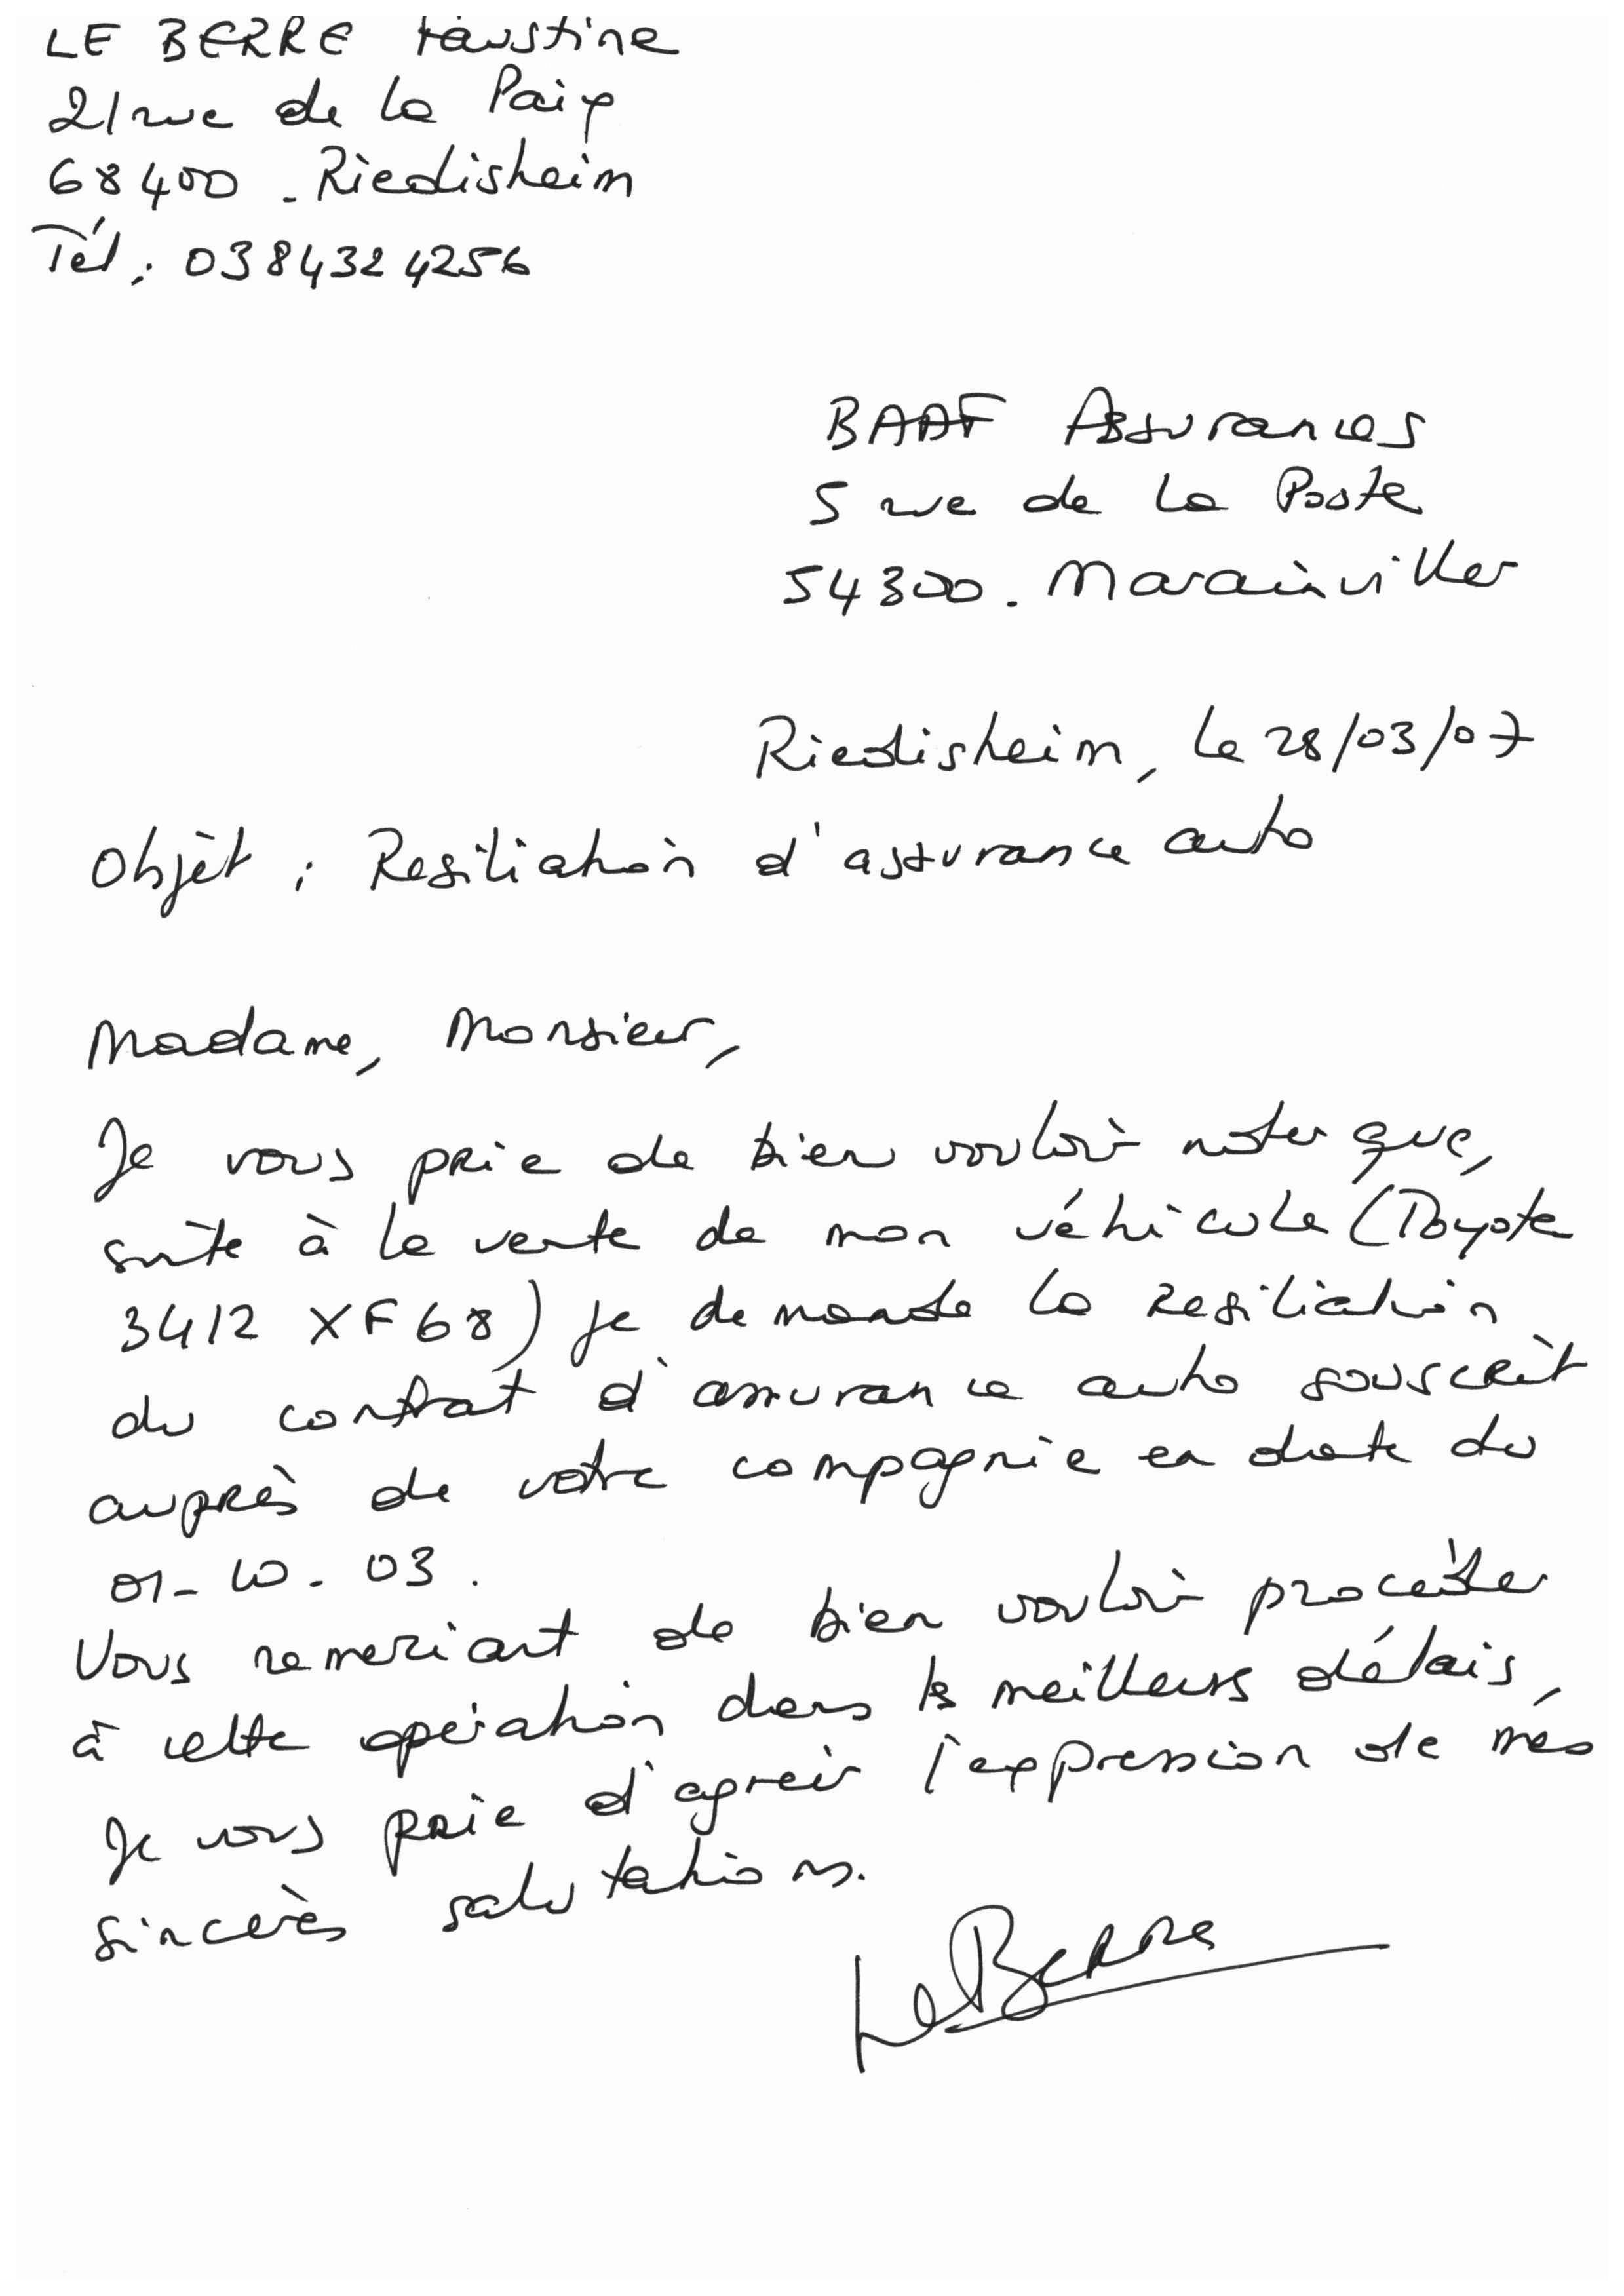 LE BERRE Faustine
21 rue de la Paix
68400 - Riedisheim
Tél : 0384324256
BAAF Assurances
5 rue de la Poste
54300 - Marainviller
Riedisheim, le 28/03/07
Objet : Resiliation d'assurance auto
Madame, Monsieur,
Je vous prie de bien vouloir noter que,
suite à la vente de mon véhicule (Toyota
3412 XF68) je demande la resiliation
du contrat d'assurance auto souscrit
auprès de votre compagnie en date du
01-10-03.
Vous remerciant de bien vouloir procéder
à cette opération dans les meilleurs délais,
Je vous prie d'agréer l'expression de mes
sincères salutations.
Le Berre